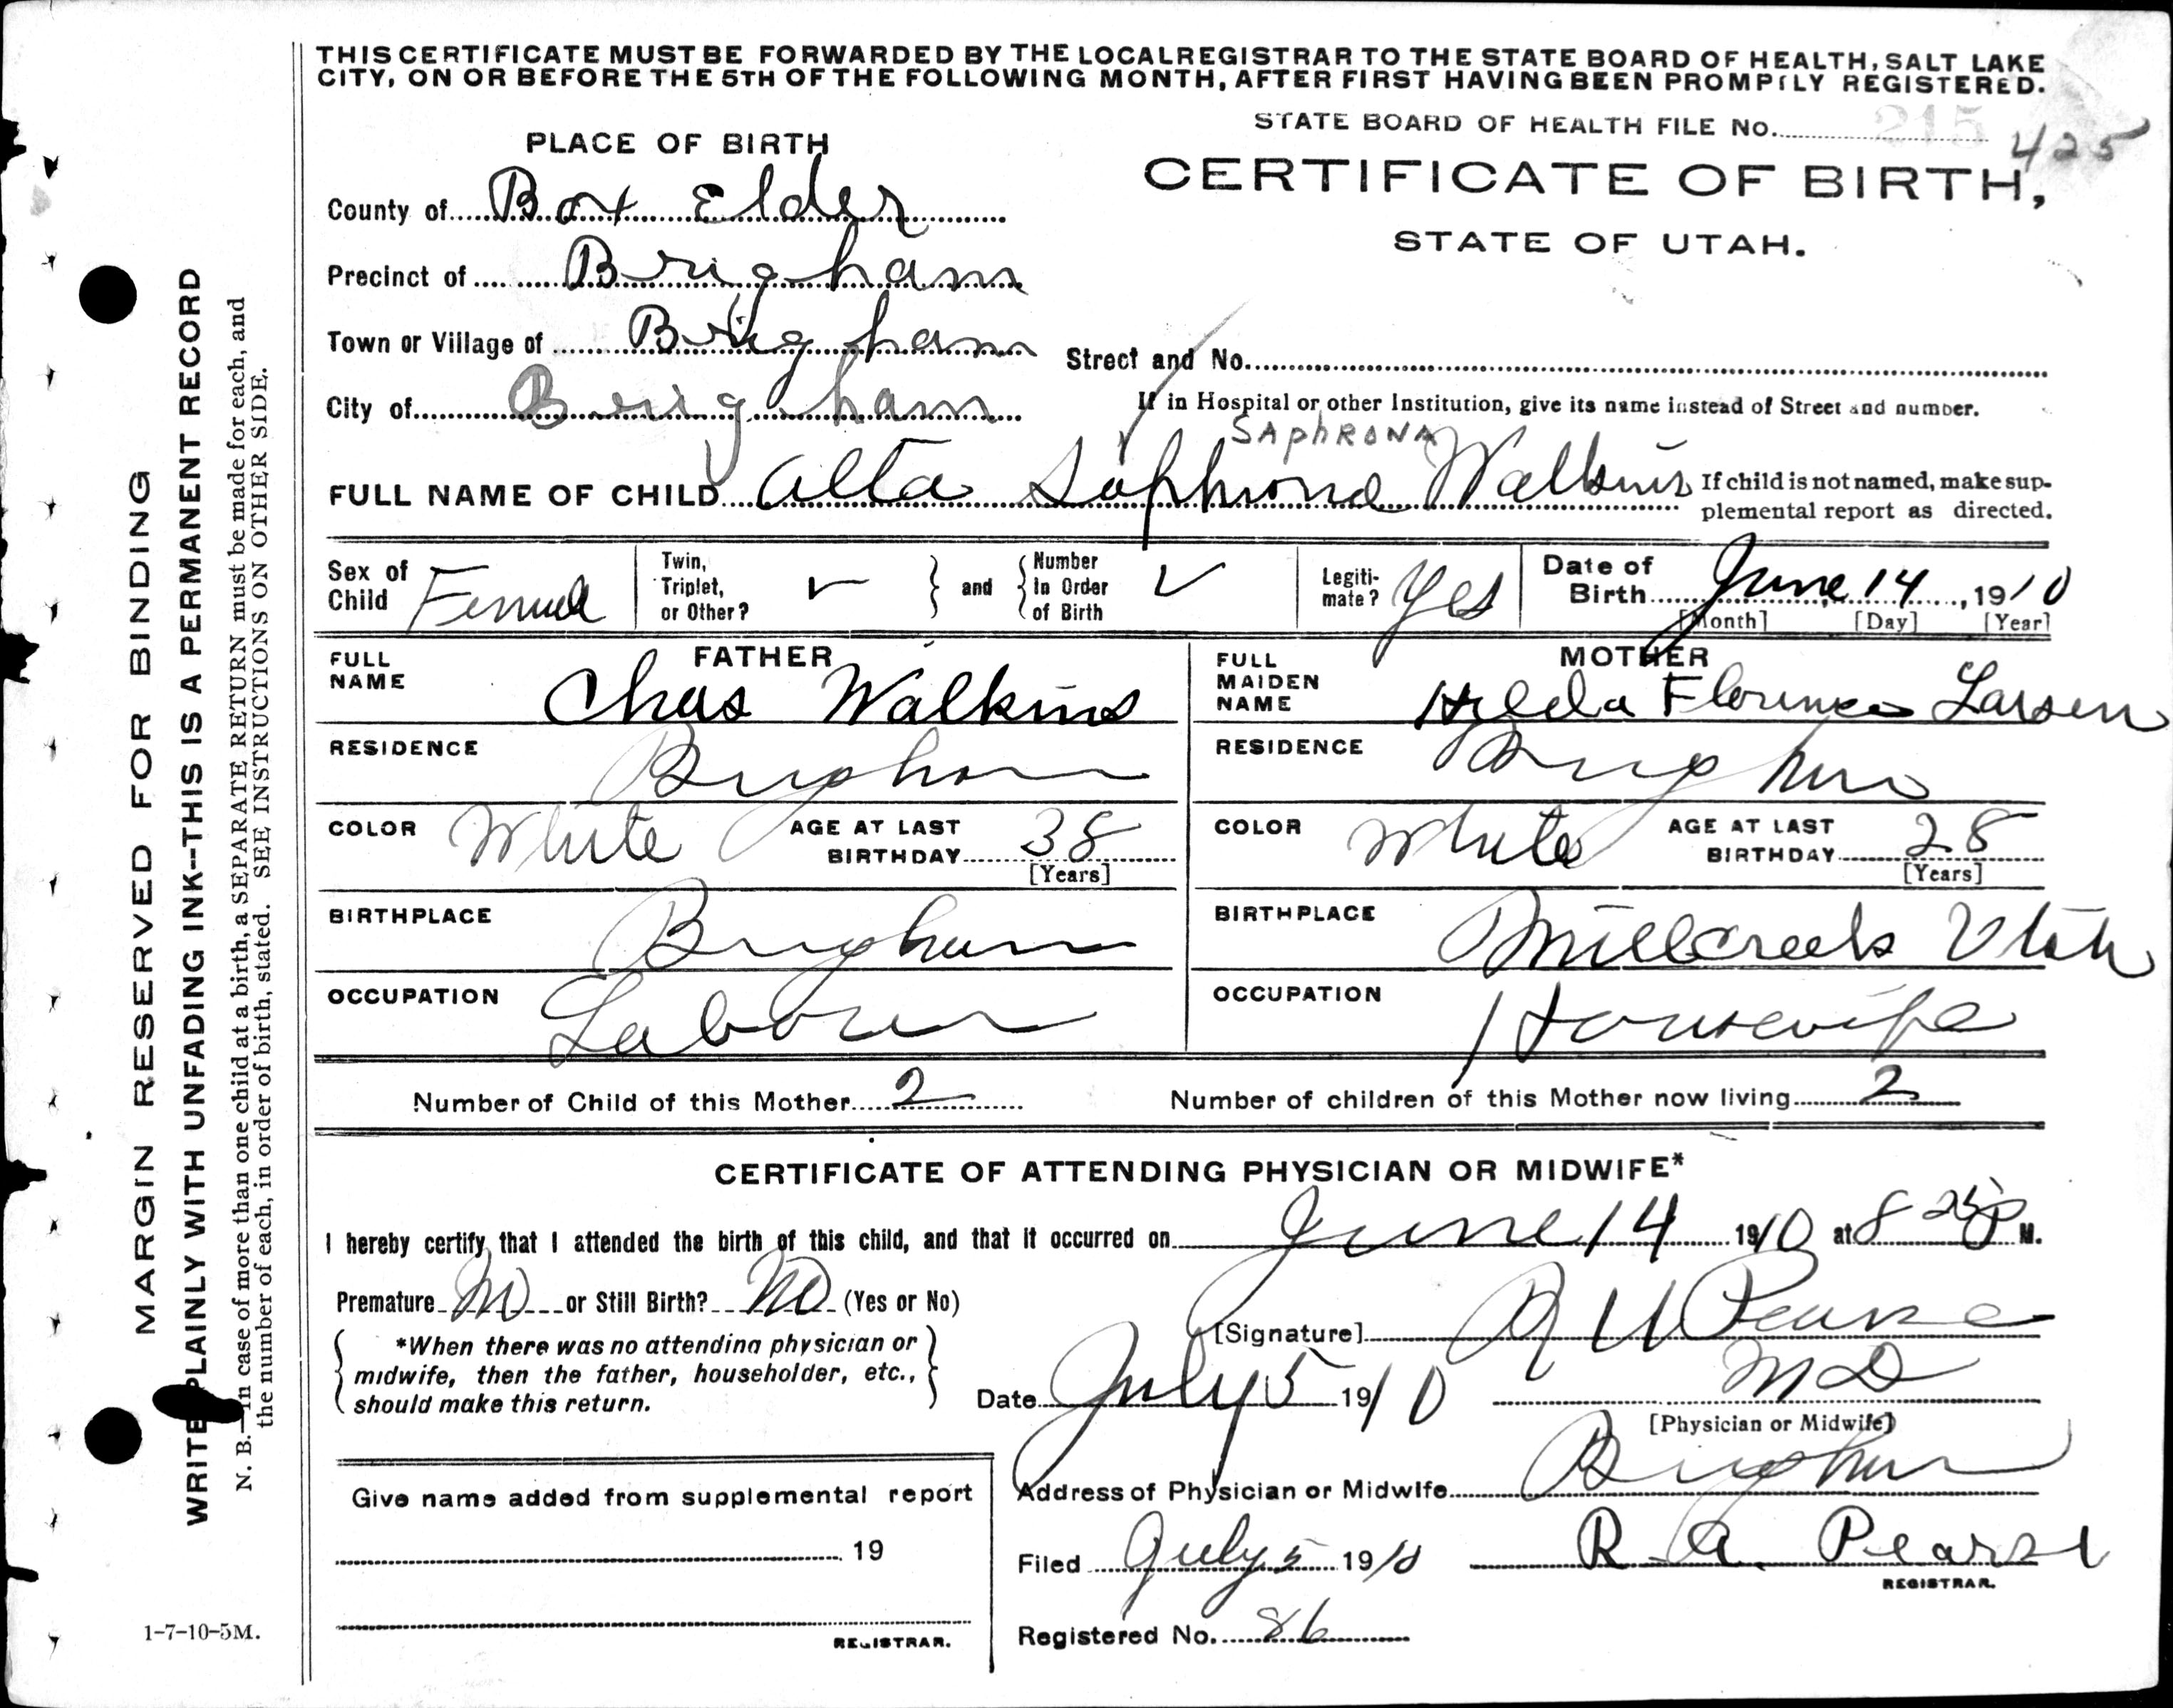 THIS CERTIFICATE MUST BE FORWARDED BY THE LOCAL REGISTRAR TO THE STATE BOARD OF HEALTH, SALT LAKE
CITY, ON OR BEFORE THE 5TH OF THE FOLLOWING MONTH, AFTER FIRST HAVING BEEN PROMPTLY REGISTERED.
STATE BOARD OF HEALTH FILE No. 215 425
PLACE OF BIRTH
CERTIFICATE OF BIRTH,
STATE OF UTAH.
County of Box Elder
Precinct of Brigham
Town or Village of Brigham
Street and No.
City of Brigham
If in Hospital or other Institution, give its name instead of Street and number.
SAphRONA
FULL NAME OF CHILD Alta Saphrona Watkins
If child is not named, make sup-
plemental report as directed.
Sex of Child Female
Twin, Triplet, or Other?
and
Number in Order of Birth
Legiti-mate? Yes
Date of Birth June 14, 1910
[Month] [Day] [Year]
FATHER
FULL NAME Chas Watkins
RESIDENCE Brigham
COLOR White
AGE AT LAST BIRTHDAY 38
[Years]
BIRTHPLACE Brigham
OCCUPATION Laborer
MOTHER
FULL MAIDEN NAME Hilda Florence Larsen
RESIDENCE Brigham
COLOR White
AGE AT LAST BIRTHDAY 28
[Years]
BIRTHPLACE Millcreek Utah
OCCUPATION Housewife
Number of Child of this Mother 2
Number of children of this Mother now living 2
CERTIFICATE OF ATTENDING PHYSICIAN OR MIDWIFE*
I hereby certify that I attended the birth of this child, and that it occurred on June 14 1910 at 8 25 P M.
Premature No or Still Birth? No (Yes or No)
*When there was no attending physician or
midwife, then the father, householder, etc.,
should make this return.
[Signature] Pearse
MD
[Physician or Midwife]
Date July 5 1910
Address of Physician or Midwife Brigham
Give name added from supplemental report
19
REGISTRAR.
Filed July 5 1910
R. A. Pearse
REGISTRAR.
Registered No. 86
MARGIN RESERVED FOR BINDING
WRITE PLAINLY WITH UNFADING INK--THIS IS A PERMANENT RECORD
N. B.—In case of more than one child at a birth, a SEPARATE RETURN must be made for each, and
the number of each, in order of birth, stated. SEE INSTRUCTIONS ON OTHER SIDE.
1-7-10-5M.